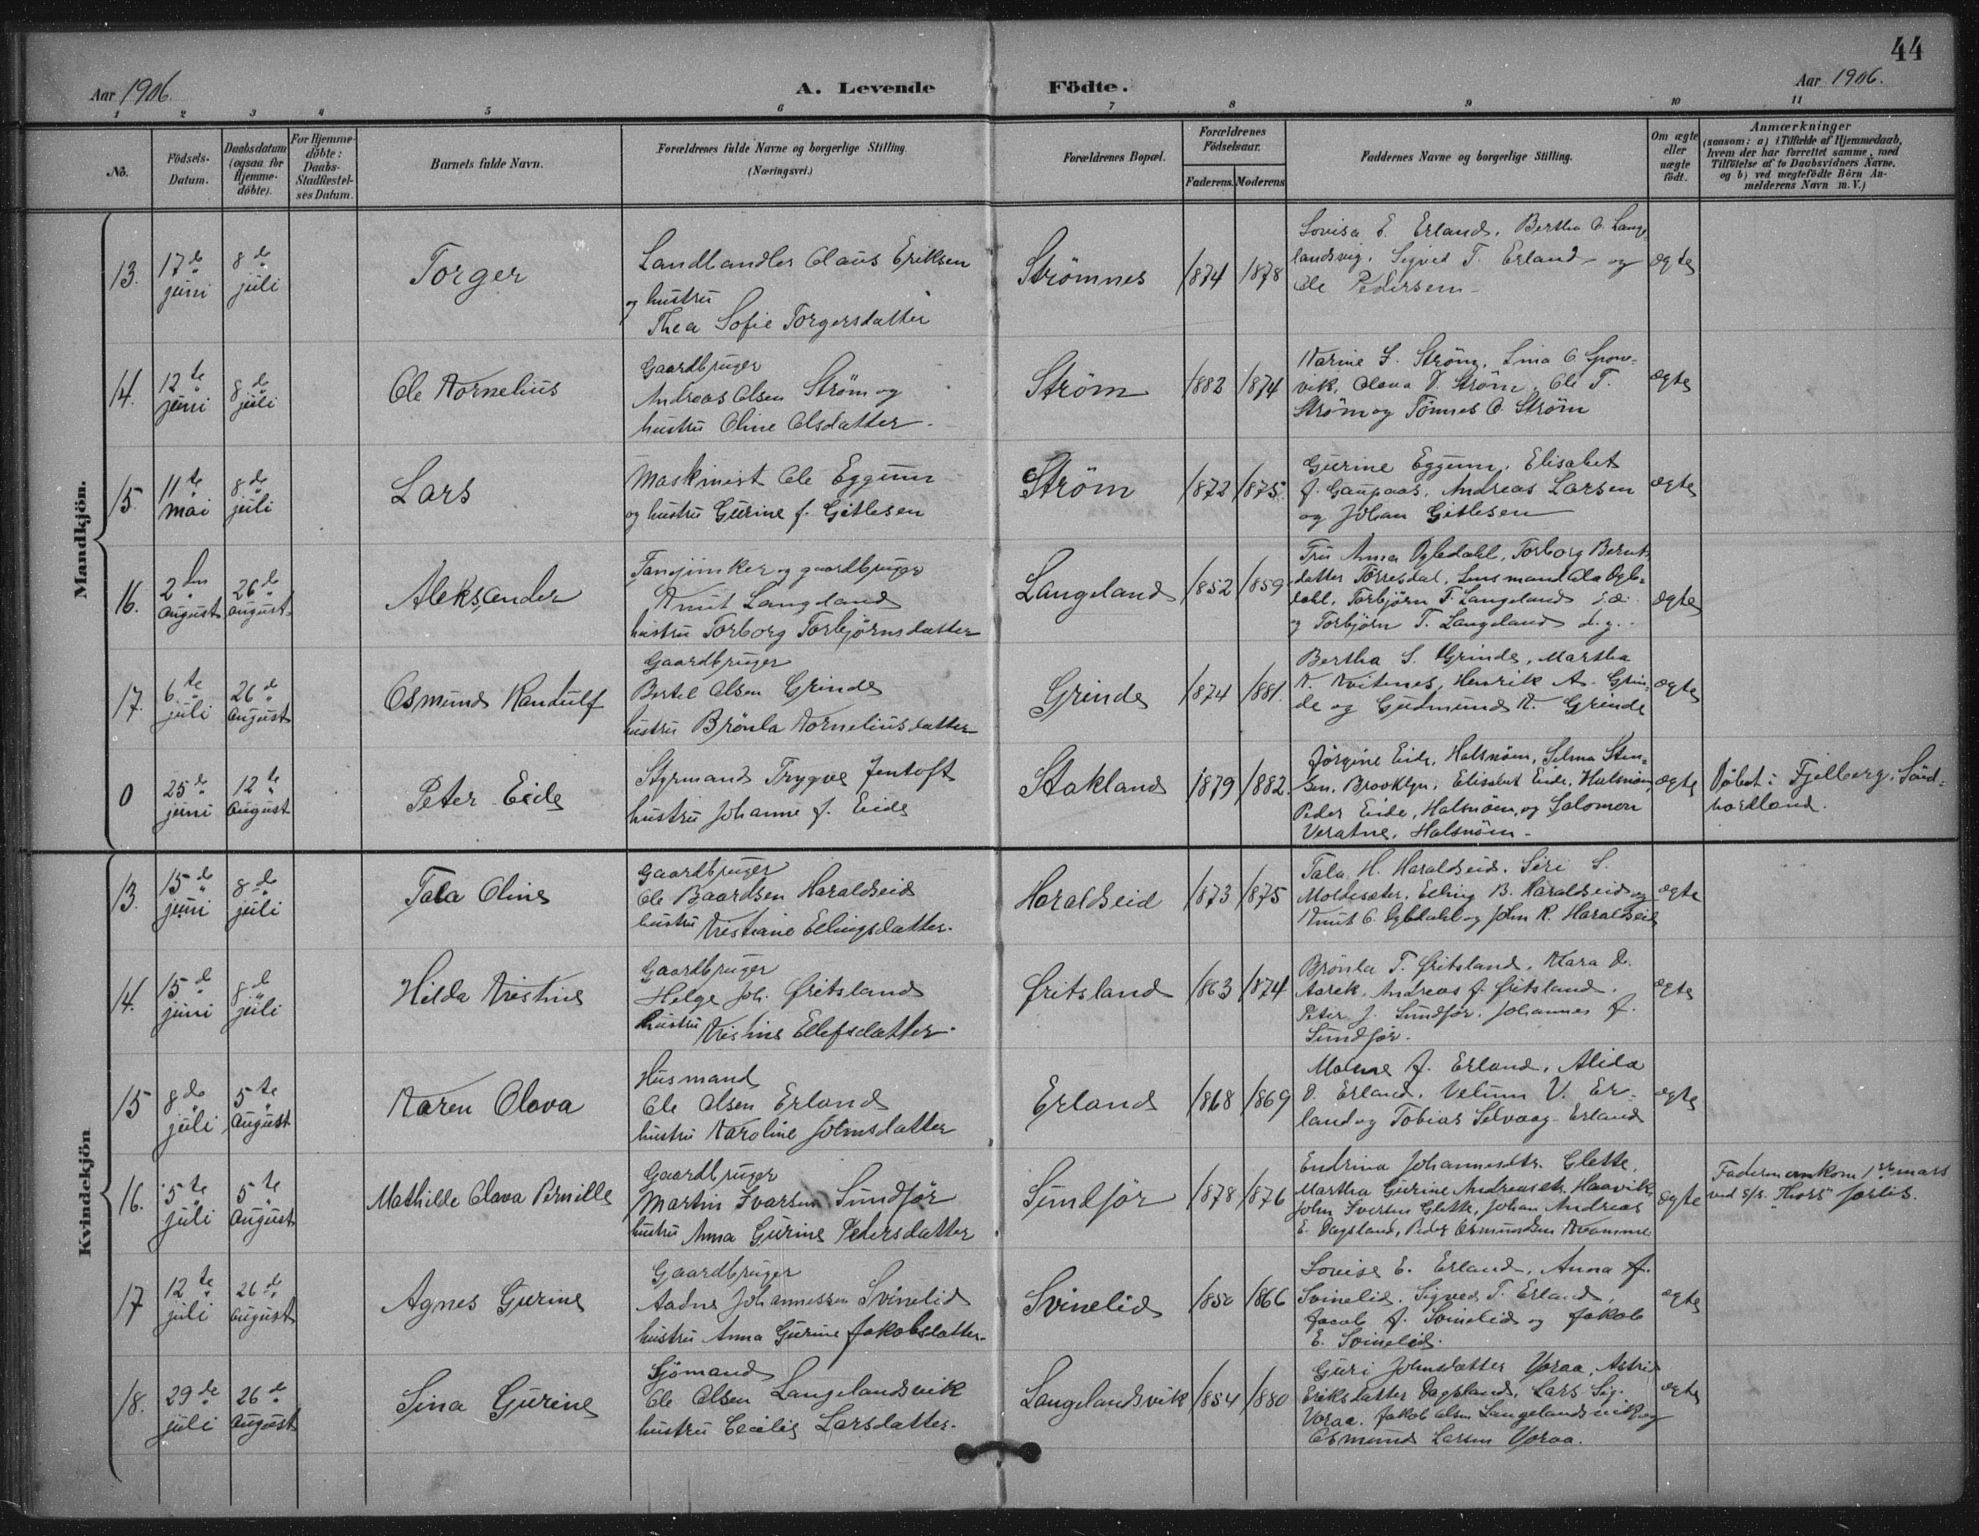 44
Aar 1906.
A. Levende
Födte.
Aar 1906.
1 2 3 4 5 6 7 8 9 10 11
No.
Födsels-
Datum.
Daabsdatum
(ogsaa for
Hjemme-
döbte).
For Hjemme-
döbte:
Daabs-
Stadfæstel-
ses Datum.
Barnets fulde Navn.
Forældrenes fulde Navne og borgerlige Stilling.
(Næringsvei.)
Forældrenes Bopæl.
Forældrenes
Födselsaar.
Faderens. Moderens
Faddernes Navne og borgerlige Stilling.
Om ægte
eller
uægte
födt.
Anmærkninger
(saasom: a) i Tilfælde af Hjemmedaab,
hvem der har forrettet samme, med
Tilföielse af to Daabsvidners Navne,
og b) ved uægtefödte Börn An-
melderens Navn m. V.)
Mandkjön.
13.
17de
juni
8de
juli
Torger
Landhandler Claus Eriksen
og hustru
Thea Sofie Torgersdatter
Strömnes
1874
1878
Lovisa E. Erland, Bertha O. Lange
landsvig, Sigved T. Erland og
Ole Pedersen
ægte
14.
12te
juni
8de
juli
Ole Kornelius
Gaardbruger
Andreas Olsen Ström og
hustru Oline Olsdatter.
Ström
1882
1874
Karine S. Ström, Lina O.
vik, Olava O. Ström, Ole T.
Ström og Tönnes O. Ström
ægte
15.
11te
mai
8de
juli
Lars
Maskinist Ole Eggum
og hustru Gurine f. Gitlesen
Ström
1872
1875.
Gurine Eggum, Elisabet
f. Gaupaas, Andreas Larsen
og Johan Gitlesen
ægte
16.
2den
August
26de
August
Aleksander
og gaardbruger
Knut Langeland
hustru Torborg Torbjörnsdatter
Langeland
1852
1859
Fru Anna Ögledahl, Torborg Bernt
datter Torresdal, Lensmand Ögle-
dahl, Torbjörn T. Langeland d.æ.
og Torbjörn T. Langeland d.y.
ægte
17.
6te
juli
26de
August
Osmund Randulf
Gaardbruger
Bertel Olsen Grinde
hustru Brönla Korneliusdatter
Grinde
1874
1881.
Bertha S. Grinde, Martha
K. Kvitnes, Henrik A. Grin-
de og Gudmund K. Grinde
ægte
0
25de
juni
12te
August
Peter Eide
Styrmand Trygve Jentoft
hustru Johanne f. Eide
Stakland
1879
1882.
Jörgine Eide, Halsnöen, Selma Sten-
sen, Brooklyn, Elisabet Eide, Halsnöen,
Peder Eide, Halsnöen, og Salomon
Veratne, Halsnöen.
ægte
Döbt i Fjelberg, Sönd-
hordland.
Kvindekjön
13.
15de
juni
8de
juli
Tala Oline
Gaardbruger
Ole Baardsen Haraldseid
hustru Kristiane Ellingsdatter.
Haraldseid
1873
1875
Tala H. Haraldseid, Siri S.
Moldesæter, Elling B. Haraldseid og
Knut G. Ögledahl og John R. Haraldseid
ægte
14.
15de
juni
8de
juli
Hilda Kristine
Gaardbruger
Helge Joh. Öritsland
hustru Kristine Ellefsdatter.
Öritsland
1863
1874
Brönla T. Öritsland, Klara D.
Aarek, Andreas J. Öritsland,
Peter J. Sundför, Johannes J.
Sundför.
ægte
15
8de
juli
5te
August
Karen Olava
Husmand
Ole Olsen Erland
hustru Karoline Johnsdatter
Erland
1868
1869
Malene J. Erland, Alida
O. Erland, Velum V. Er-
land og Tobias Selvaag Erland
ægte
16.
5te
juli
5te
August
Mathilde Olava Pernille
Gaardbruger
Martin Ivarsen Sundför
hustru Anna Gurine Pedersdatter
Sundför
1878
1876
Endrina Johannesdtr. Glette,
Martha Gurine Andreasdtr. Haavik,
John Iversen Glette, Johan Andreas
E. Dagsland, Peder Osmundsen Kvamme
ægte
Faderen omkom 1ste mars
ved s/s "Thors" forlis.
17
12te
juli
26de
August
Agnes Gurine
Gaardbruger
Aadne Johannessen Svinelid
hustru Anna Gurine Jakobsdatter
Svinelid
1850
1866
Lovise E. Erland, Anna J.
Svinelid, Sigved T. Erland,
Jacob J. Svinelid og Jakob
E. Svinelid.
ægte
18.
29de
juli
26de
August
Sina Gurine
Sjömand
Ole Olsen Langelandsvik
hustru Cecilie Larsdatter.
Langelandsvik
1854
1880
Guri Johnsdatter Voraa, Astrid
Eriksdatter Dagsland, Lars Sig.
Voraa, Jakob Olsen Langelandsvik og
Osmund Larsen Voraa.
ægte